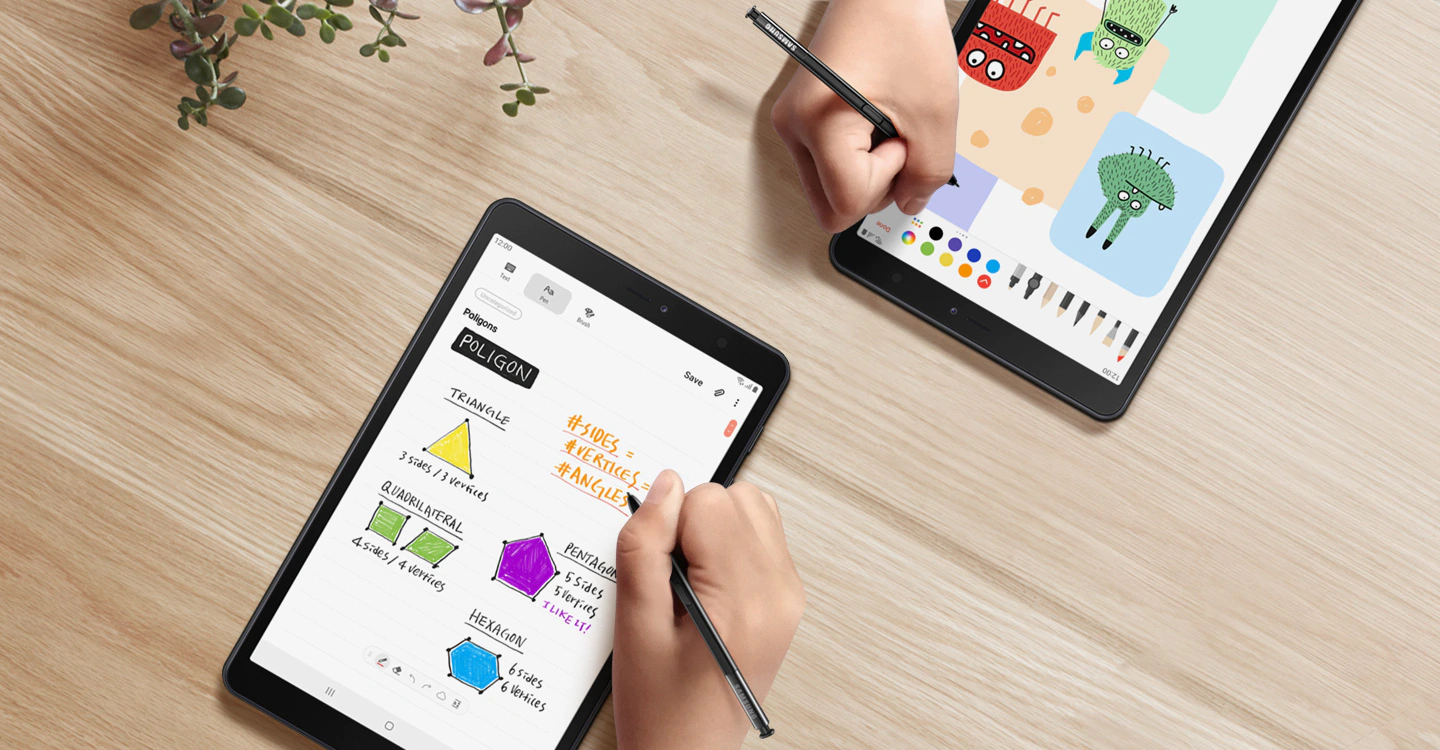 SAMSUNG
Done
12:00
12:00
Text
Aa
Pen
Brush
Uncategorized
Poligons
Save
POLIGON
TRIANGLE
3 sides / 3 vertices
#SIDES =
#VERTICES =
#ANGLES
QUADRILATERAL
4 sides / 4 vertices
PENTAGON
5 sides
5 vertices
I LIKE IT!
HEXAGON
6 sides
6 vertices
SAMSUNG